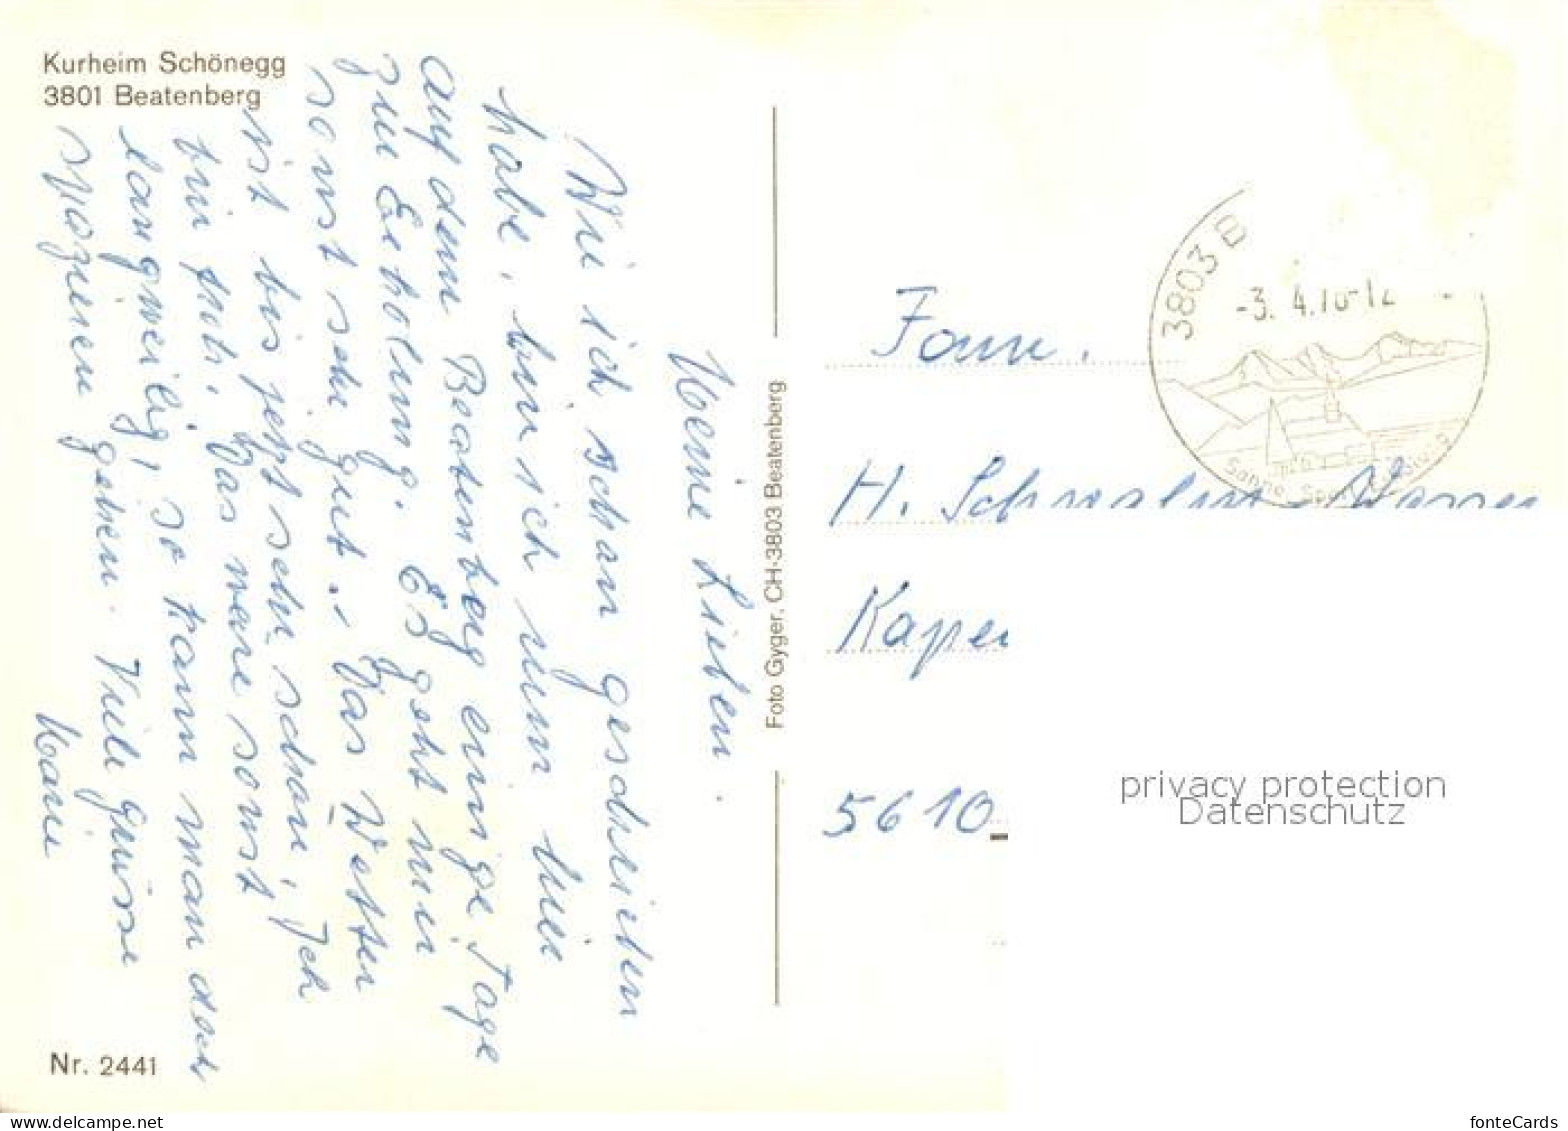 Kurheim Schönegg
3801 Beatenberg
Meine Lieben.
Wie ich schon geschrieben
habe, bin ich nun hier
auf dem Beatenberg einige Tage
zur Erholung. Es geht mir
sonst sehr gut. Das Wetter
ist bis jetzt sehr schön, Ich
bin froh, Das wäre sonst
langweilig, so kann man doch
spazieren gehen. Viele Grüsse
Nr. 2441
Foto Gyger, CH-3803 Beatenberg
3803 B
-3. 4.76-12
Fam.
H.
5610
privacy protection
Datenschutz
www.delcampe.net
fonteCards